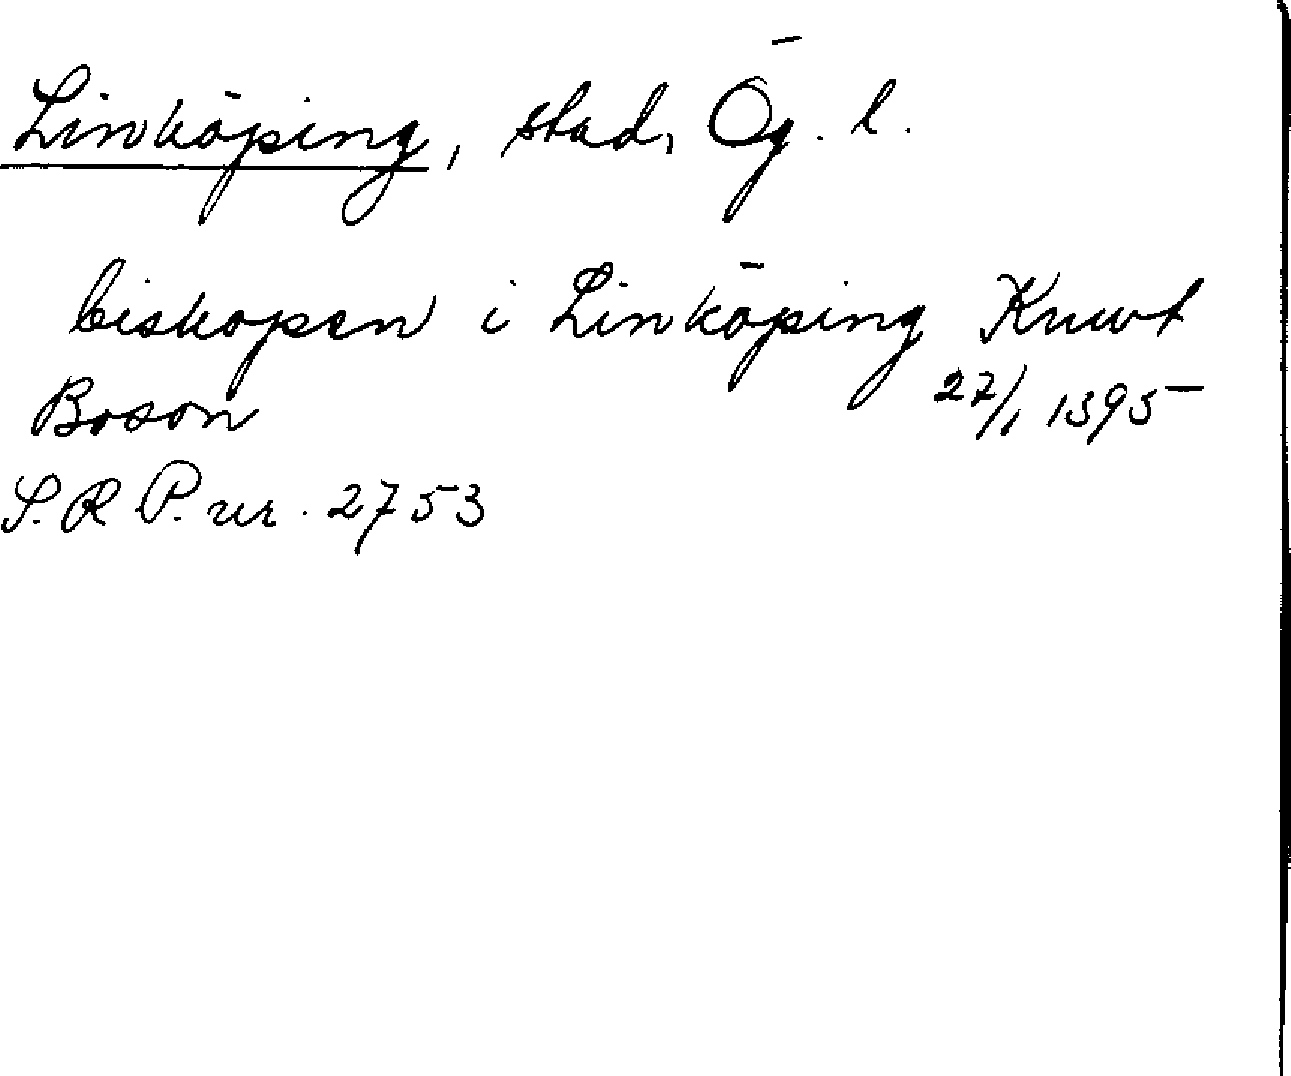 Linköping, stad, Ög. l.
biskopen i Linköping Knut
Boson 27/1 1395
S. R P. nr. 2753